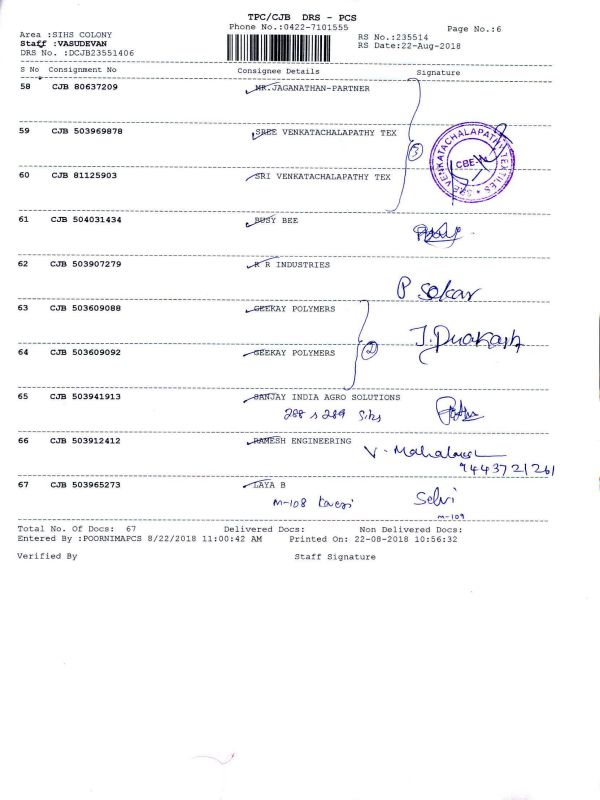 TPC/CJB DRS - PCS
Phone No.:0422-7101555
Page No.:6
Area :SIHS COLONY
RS No.:235514
Staff :VASUDEVAN
RS Date:22-Aug-2018
DRS No. :DCJB23551406
S No Consignment No Consignee Details Signature
58 CJB 80637209 MR.JAGANATHAN-PARTNER
59 CJB 503969878 SREE VENKATACHALAPATHY TEX
3
SREE VENKATACHALAPATHY TEXTILES
60 CJB 81125903 SRI VENKATACHALAPATHY TEX
61 CJB 504031434 BUSY BEE
62 CJB 503907279 R R INDUSTRIES
P Sekar
63 CJB 503609088 GEEKAY POLYMERS
J. Prakash
2
64 CJB 503609092 GEEKAY POLYMERS
65 CJB 503941913 SANJAY INDIA AGRO SOLUTIONS
288 289 Sihs
66 CJB 503912412 RAMESH ENGINEERING
V. Mahalaxmi
9443721261
67 CJB 503965273 LAYA B
M-108 Kaveri Selvi
M-109
Total No. Of Docs: 67 Delivered Docs: Non Delivered Docs:
Entered By :POORNIMAPCS 8/22/2018 11:00:42 AM Printed On: 22-08-2018 10:56:32
Verified By Staff Signature